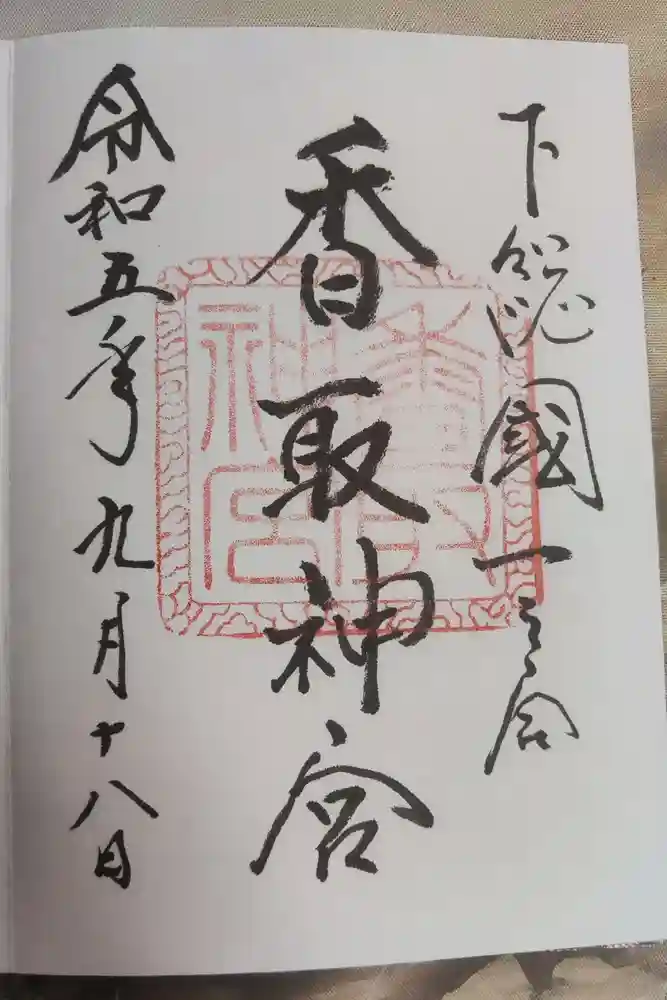 下総國一之宮
香取神宮
令和五年九月十八日
香取神宮